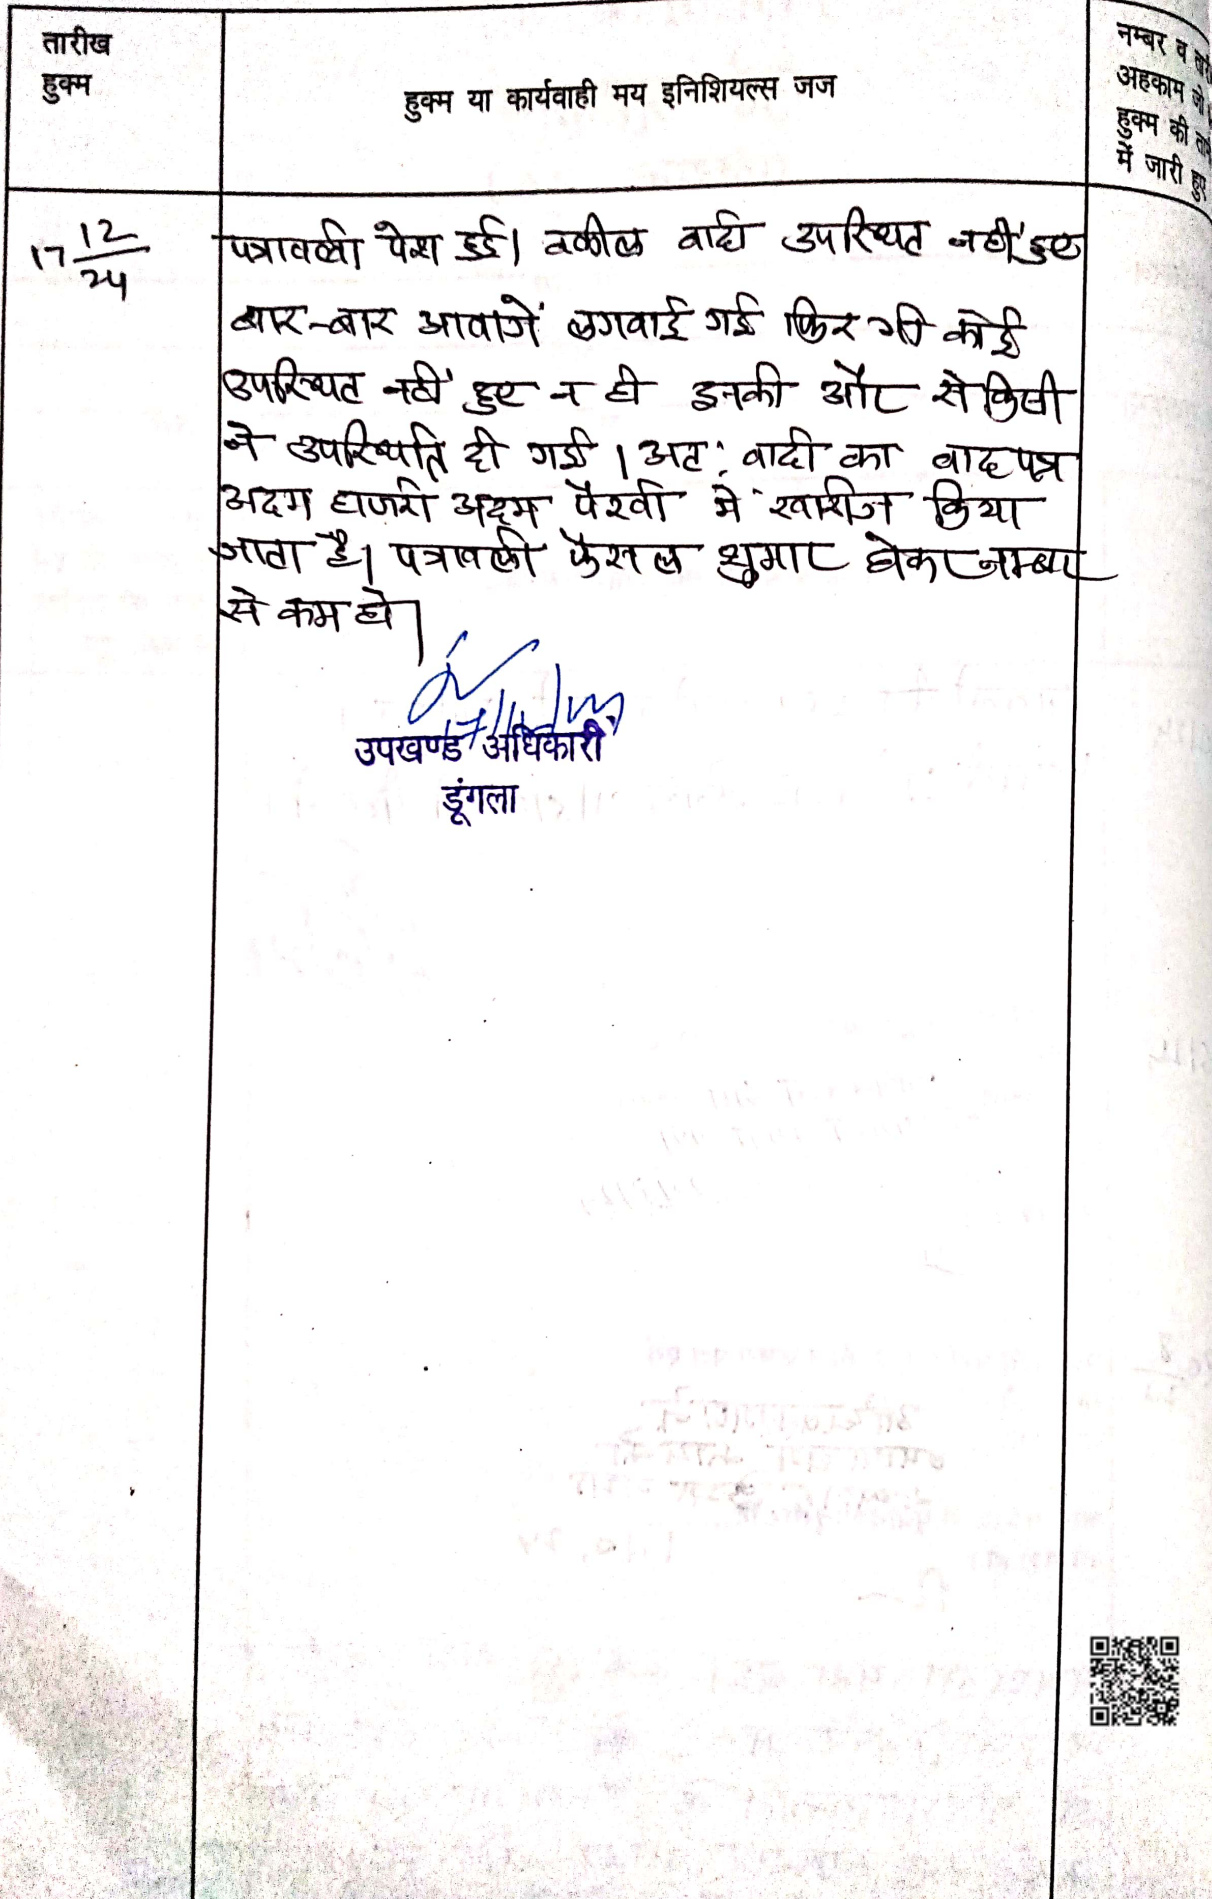 तारीख
हुक्म
हुक्म या कार्यवाही मय इनिशियल्स जज
नम्बर व
अहकाम जो
हुक्म की
में जारी हुए
17 12/24
पत्रावली पेश हुई। वकील वादी उपस्थित नहीं हुए
बार-बार आवाजें लगवाई गई फिर भी कोई
उपस्थित नहीं हुए न ही इनकी और से किसी
ने उपस्थिति दी गई। अत: वादी का वादपत्र
अदम हाजरी अदम पैरवी में खारीज किया
जाता है। पत्रावली फैसल शुमार होकर नम्बर
से कम हो।
उपखण्ड अधिकारी
डूंगला